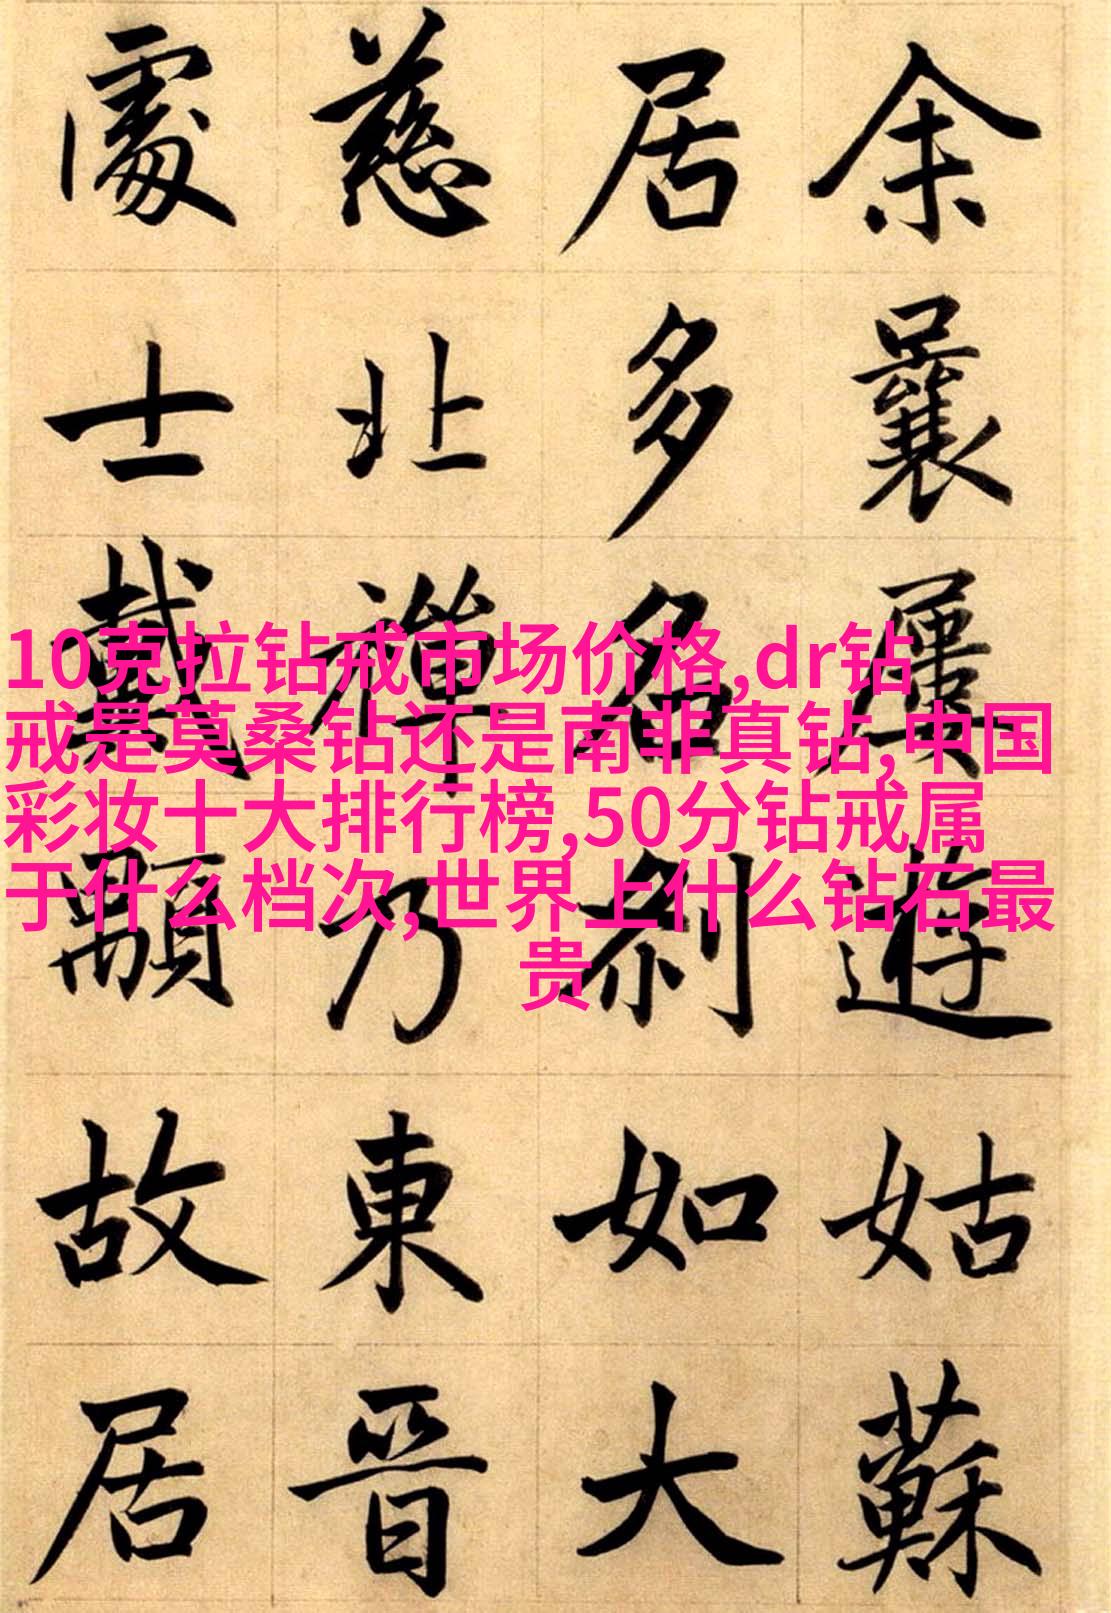 余曩屢遊姑蘇
居多名刹如大
慈北禅乃東晉
處士戴顒故居
10克拉钻戒市场价格,dr钻
戒是莫桑钻还是南非真钻,中国
彩妆十大排行榜,50分钻戒属
于什么档次,世界上什么钻石最
贵